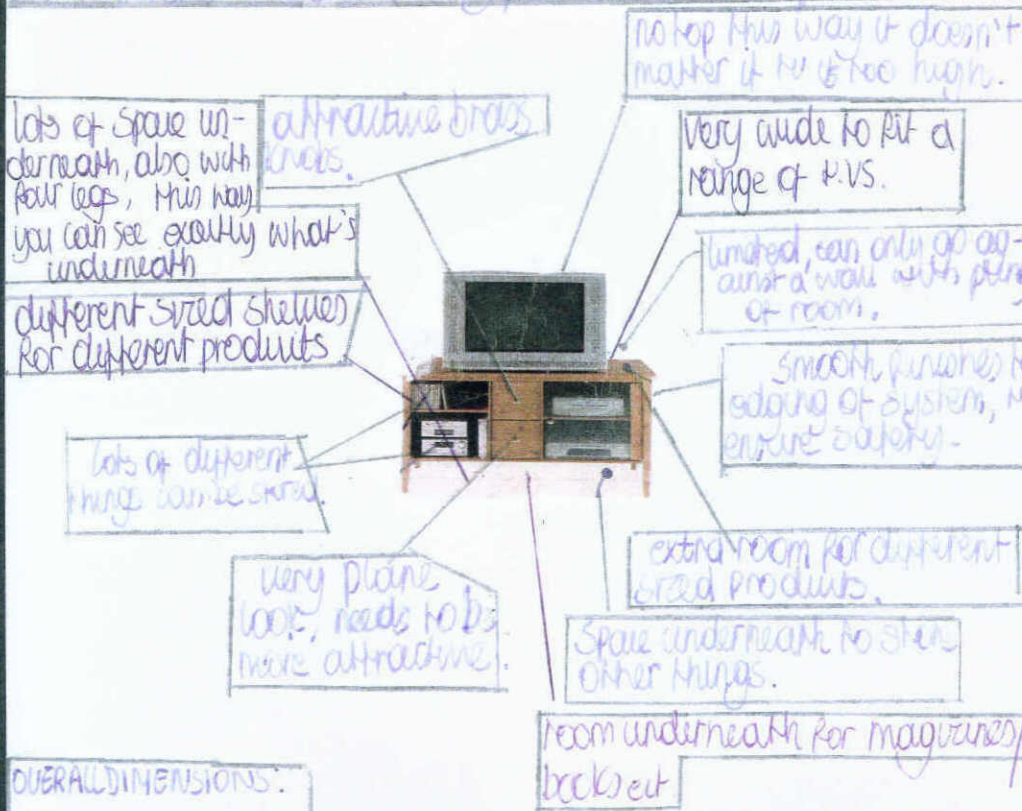 no top this way it doesn't
matter if tv is too high.
lots of space un-
derneath, also with
four legs, this way
you can see exactly what's
underneath
attractive brass
knobs.
very wide to fit a
range of t.vs.
limited, can only go ag-
ainst a wall with plenty
of room.
different sized shelves
for different products
smooth finishes to
edging of system, to
ensure safety.
lots of different
things can be stored.
extra room for different
sized products.
very plane
look, needs to be
more attractive.
Space underneath to store
other things.
room underneath for magizines/
books ect
OVERALL DIMENSIONS: